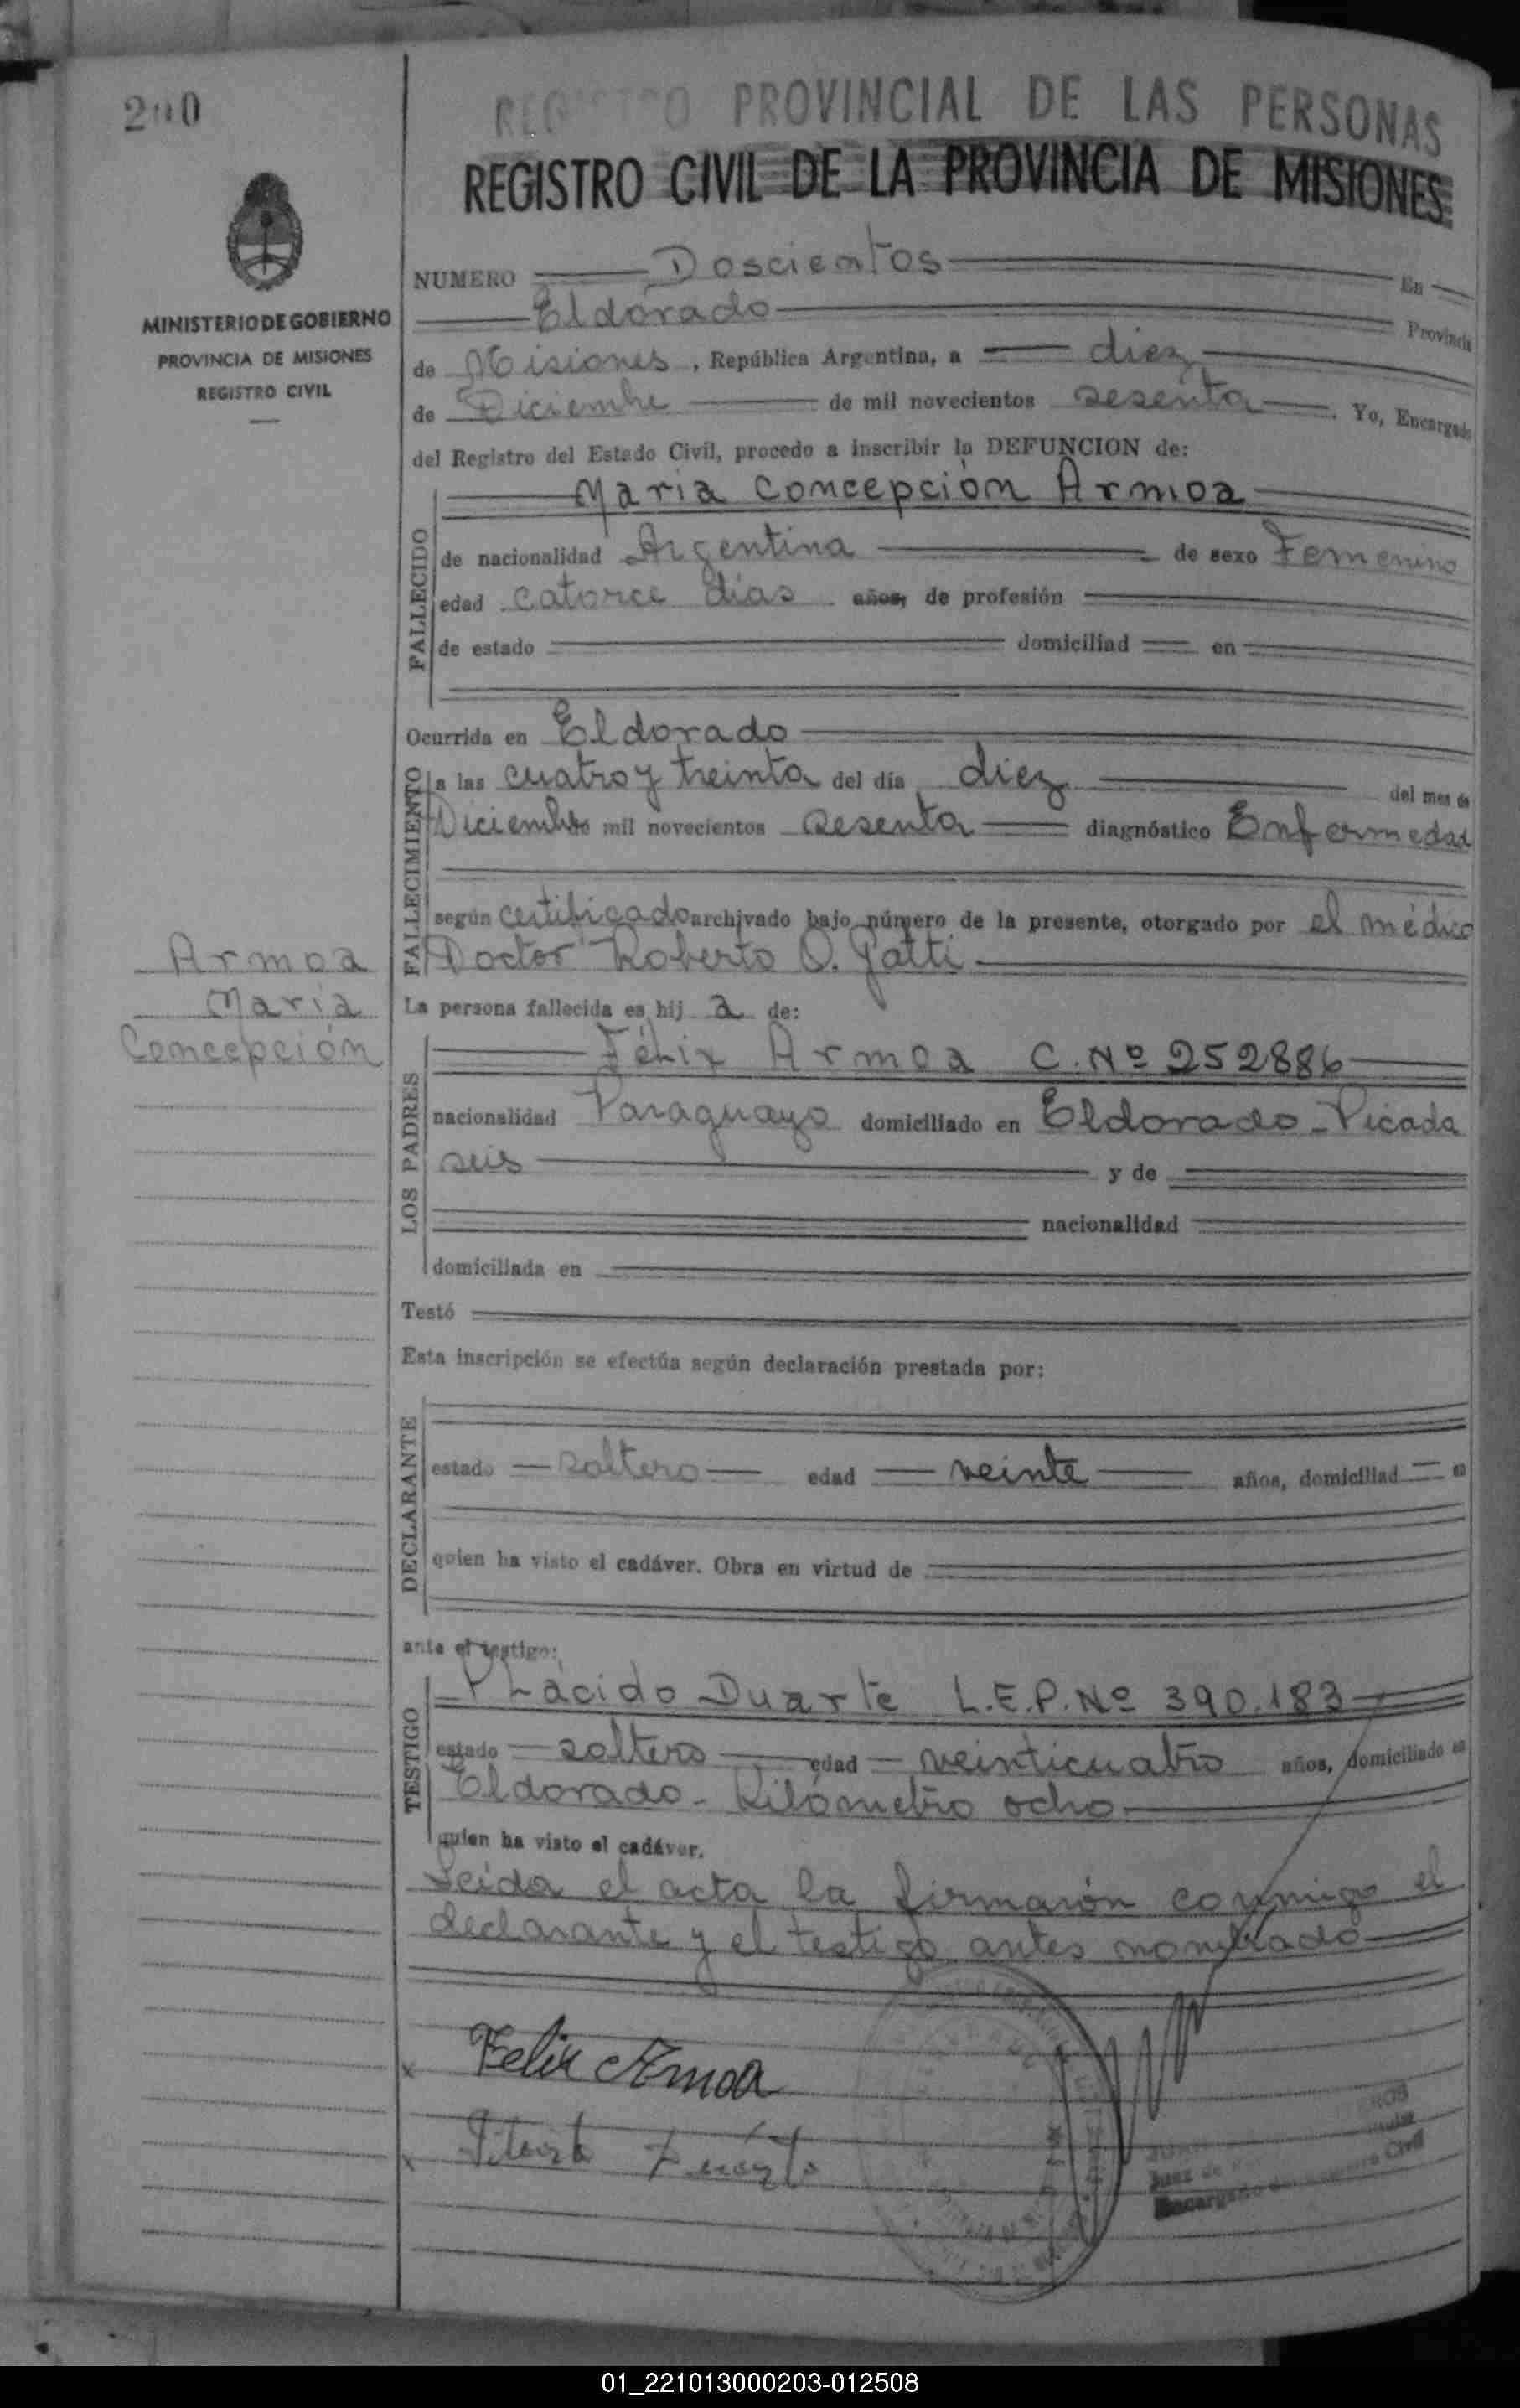 200
REGISTRO PROVINCIAL DE LAS PERSONAS
REGISTRO CIVIL DE LA PROVINCIA DE MISIONES
MINISTERIO DE GOBIERNO
PROVINCIA DE MISIONES
REGISTRO CIVIL
NUMERO Doscientos En
Eldorado Provincia
de Misiones, República Argentina, a diez
de Diciembre de mil novecientos sesenta. Yo, Encargado
del Registro del Estado Civil, procedo a inscribir la DEFUNCION de:
FALLECIDO
María Concepción Armoa
de nacionalidad Argentina de sexo Femenino
edad catorce días años, de profesión
de estado domiciliad en
Ocurrida en Eldorado
FALLECIMIENTO
a las cuatro y treinta del día diez del mes de
Diciembre mil novecientos sesenta diagnóstico Enfermedad
según certificado archivado bajo número de la presente, otorgado por el médico
Doctor Roberto O. Gatti.
Armoa
María
Concepción
La persona fallecida es hij a de:
LOS PADRES
Félix Armoa C. Nº 252886
nacionalidad Paraguayo domiciliado en Eldorado - Picada
seis y de
nacionalidad
domiciliada en
Testó
Esta inscripción se efectúa según declaración prestada por:
DECLARANTE
estado soltero edad veinte años, domiciliad en
quien ha visto el cadáver. Obra en virtud de
ante el testigo:
TESTIGO
Plácido Duarte L.E.P. Nº 390.183
estado soltero edad veinticuatro años, domiciliado en
Eldorado - Kilómetro ocho
quien ha visto el cadáver.
Leída el acta la firmarón conmigo el
declarante y el testigo antes nombrado
x Felix Armoa
x
Juez de
Encargado del Registro Civil
01_221013000203-012508